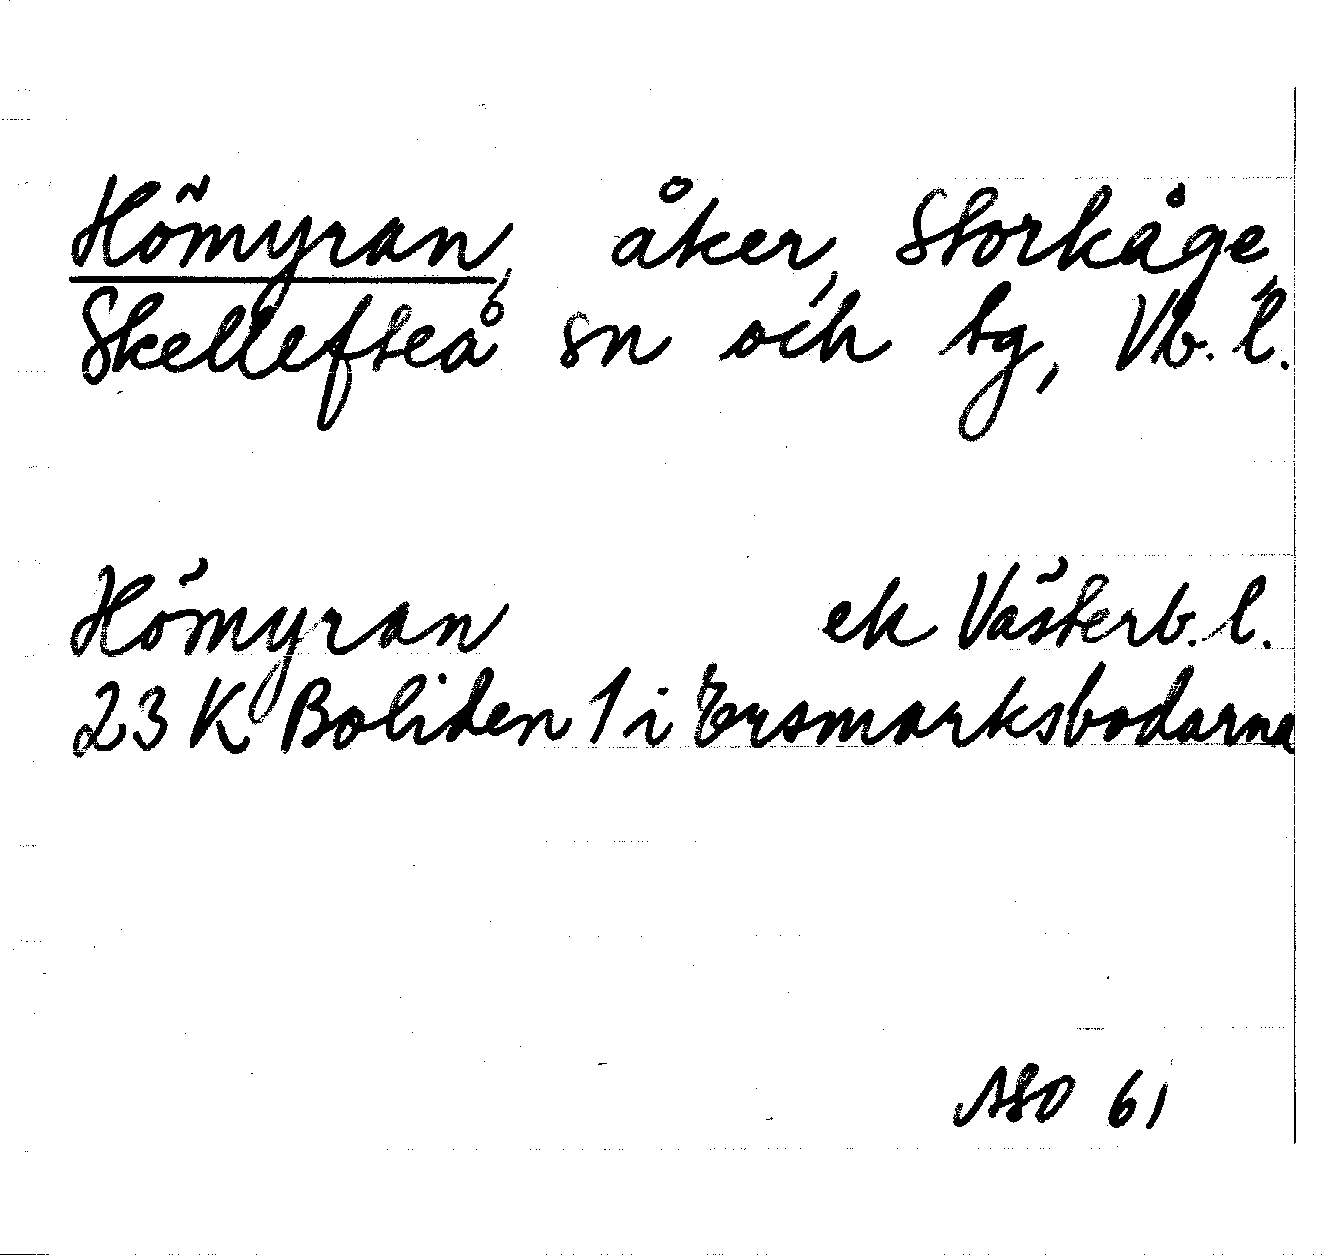 Hömyran, åker, Storkåge,
Skellefteå sn och tg, Vb. l.
Hömyran ek Västerb. l.
23 K Boliden 1 i Ersmarksbodarna
ASO 61